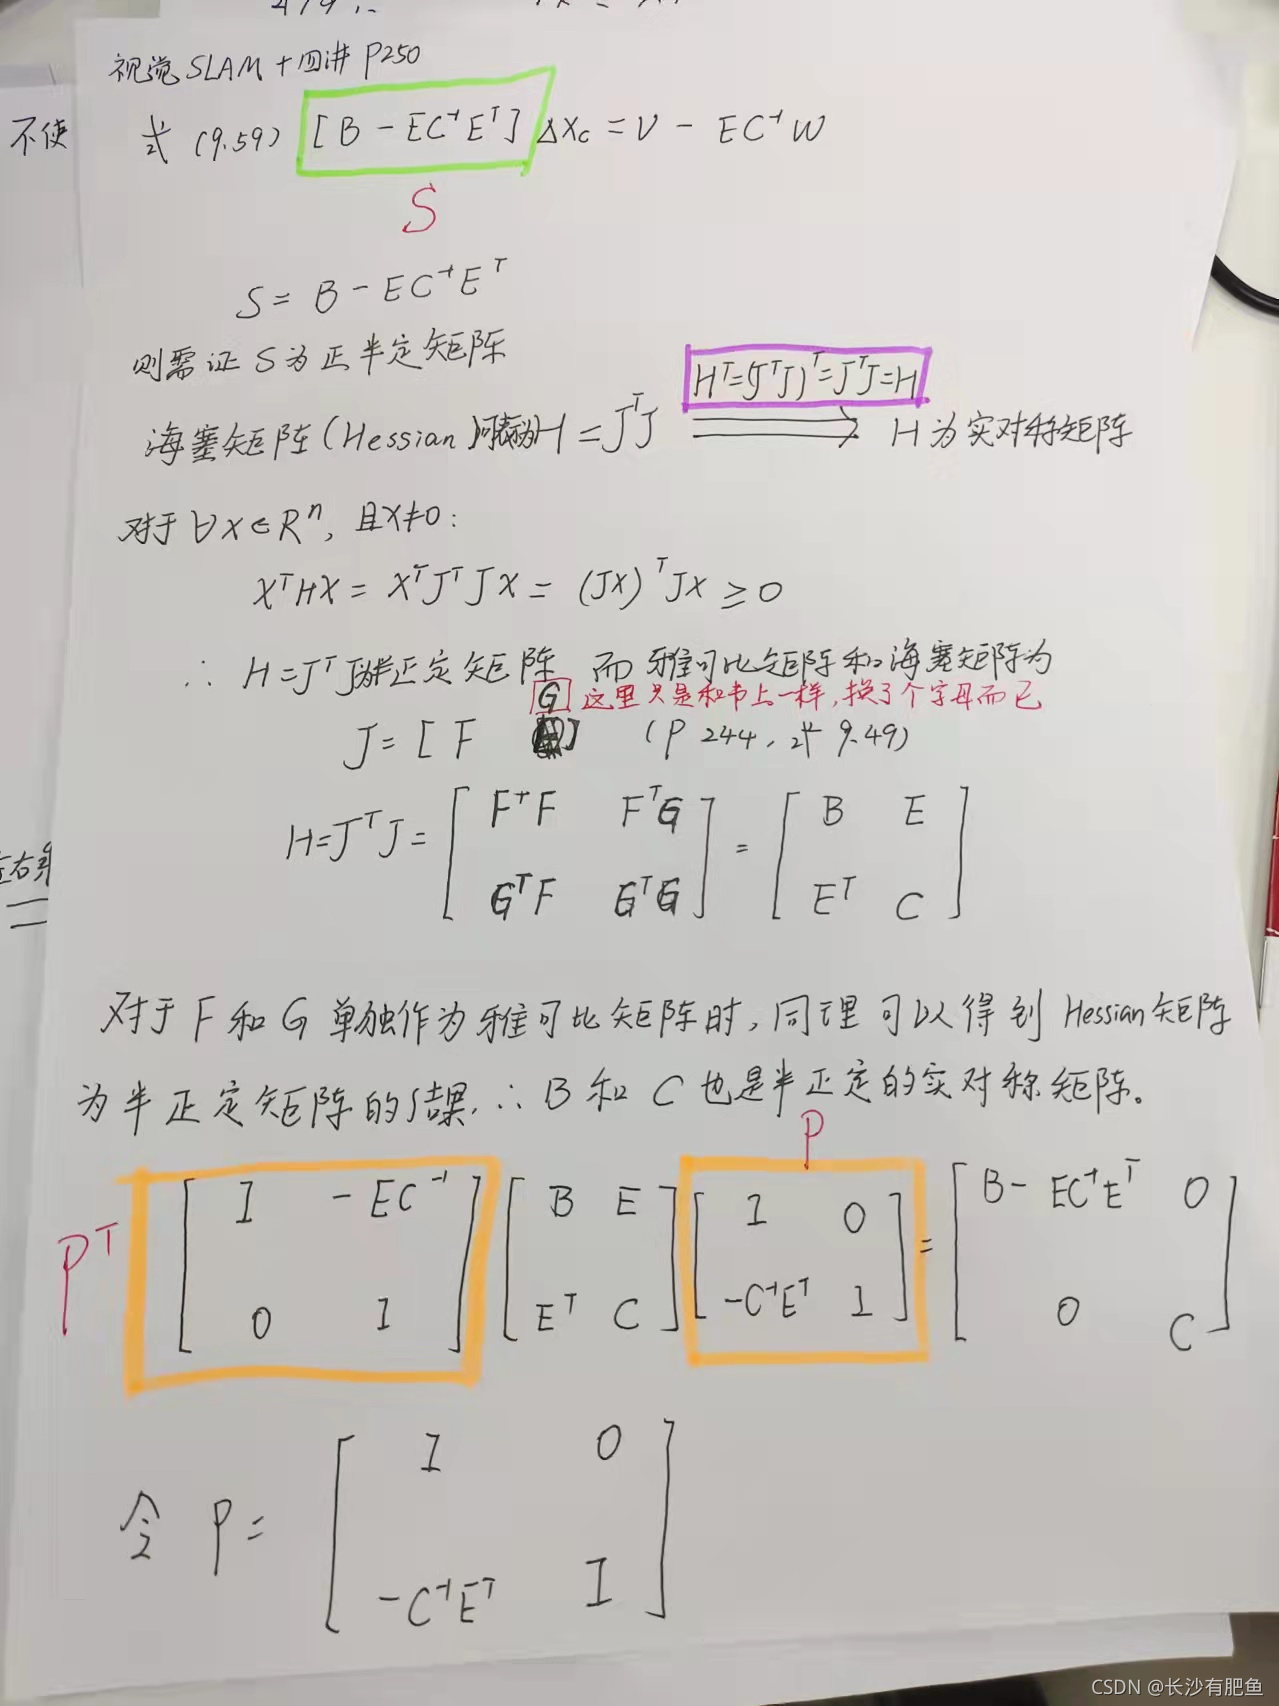 视觉SLAM十四讲 P250
不使
式 (9.59) [B - EC⁻¹Eᵀ] ΔXc = V - EC⁻¹W
S
S = B - EC⁻¹Eᵀ
则需证S为正半定矩阵
Hᵀ=(JᵀJ)ᵀ=JᵀJ=H
海塞矩阵(Hessian)可表为H = JᵀJ ⟹ H为实对称矩阵
对于∀X∈Rⁿ, 且X≠0:
XᵀHX = XᵀJᵀJX = (JX)ᵀJX ≥ 0
∴ H=JᵀJ为半正定矩阵 而雅可比矩阵和海塞矩阵为
G 这里只是和书上一样,换了个字母而已
J = [ F ] (P 244, 式 9.49)
H=JᵀJ= [ FᵀF FᵀG ] = [ B E ]
[ GᵀF GᵀG ] [ Eᵀ C ]
左右
对于F和G单独作为雅可比矩阵时,同理可以得到Hessian矩阵
为半正定矩阵的结果,∴B和C也是半正定的实对称矩阵。
P
Pᵀ [ I -EC⁻¹ ] [ B E ] [ I 0 ] = [ B- EC⁻¹Eᵀ 0 ]
[ 0 I ] [ Eᵀ C ] [ -C⁻¹Eᵀ I ] [ 0 C ]
令 P= [ I 0 ]
[ -C⁻¹Eᵀ I ]
CSDN @长沙有肥鱼